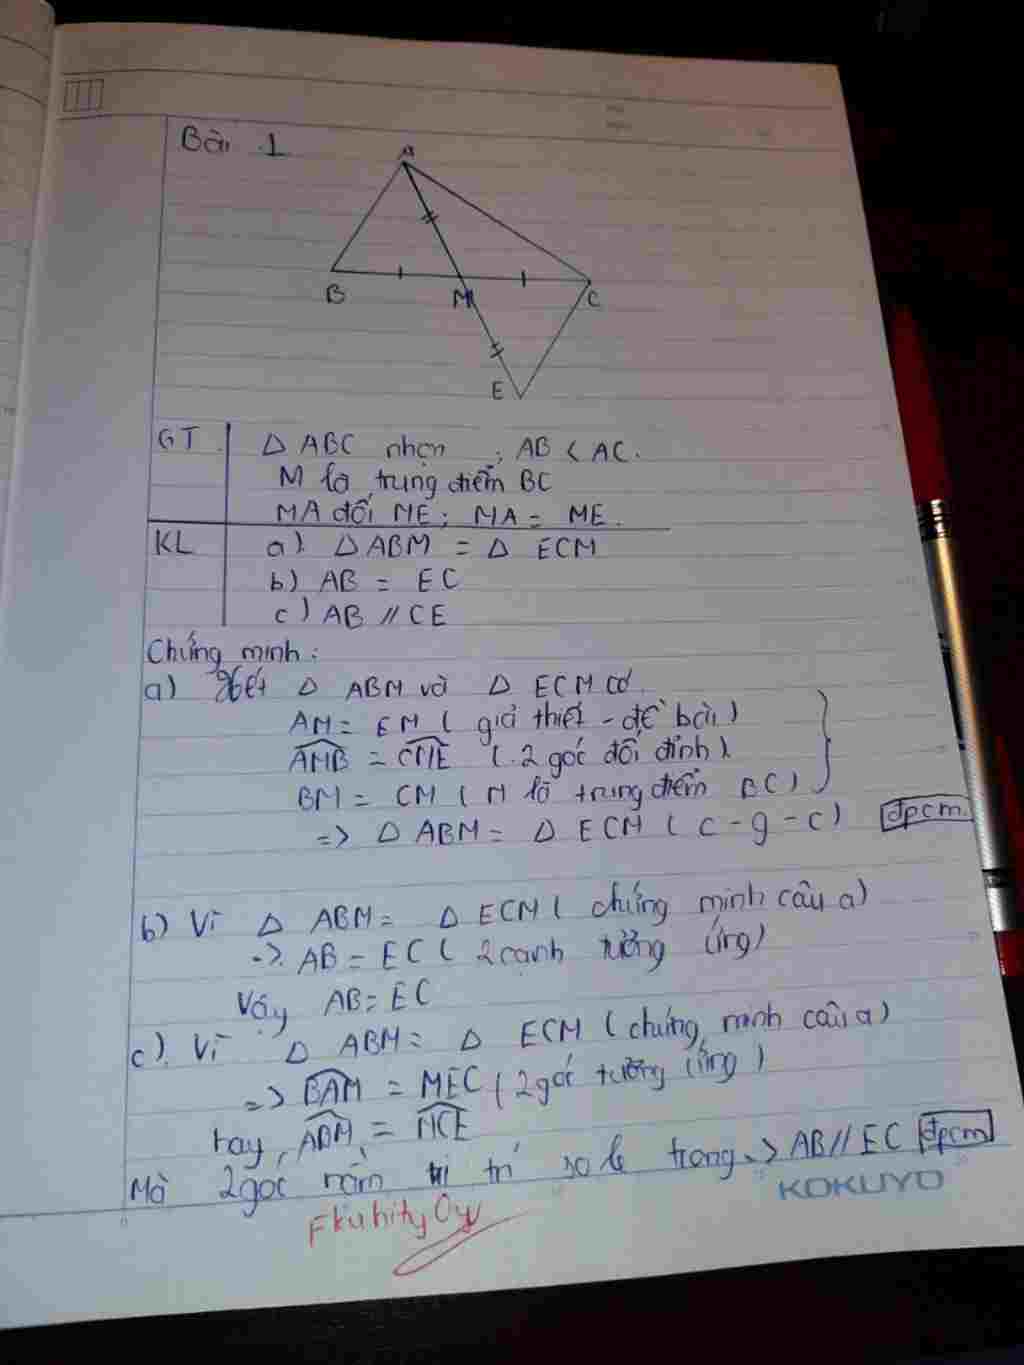 Bài 1
A
B
M
C
E
GT
Δ ABC nhọn ; AB < AC.
M là trung điểm BC
MA đối ME; MA = ME.
KL
a). Δ ABM = Δ ECM
b) AB = EC
c) AB // CE
Chứng minh:
a) Xét Δ ABM và Δ ECM có
AM = EM ( giả thiết - đề bài )
AMB = CME ( 2 góc đối đỉnh ).
BM = CM ( M là trung điểm BC )
=> Δ ABM = Δ ECM ( c - g - c ) đpcm.
b) Vì Δ ABM = Δ ECM ( chứng minh câu a)
=> AB = EC ( 2 cạnh tương ứng)
Vậy AB = EC
c). Vì Δ ABM = Δ ECM ( chứng minh câu a)
=> BAM = MEC ( 2 góc tương ứng )
hay, ABM = MCE
Mà 2 góc nằm vị trí so le trong => AB // EC đpcm
KOKUYO